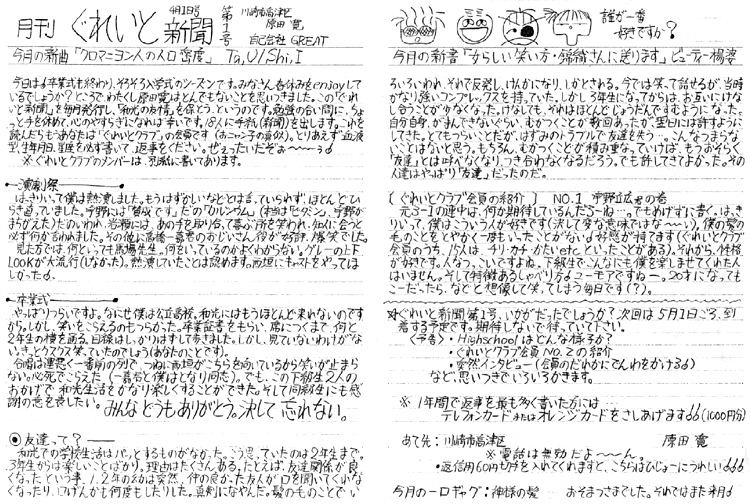 月刊 ぐれいと新聞
4月1日号
第1号
川崎市高津区
原田 寛
自己会社 GREAT
今月の新曲「クロマニヨン人の人口密度」 Ta,U/Shi,I
今日は。卒業式も終わり、そろそろ入学式のシーズンです。みなさん、春休みをenjoyして
いるでしょうか?ところでわたくし原田寛はとんでもないことを思いつきました。この「ぐれ
いと新聞」を毎月発行し、「和光の友情」を保とう、というのです。勉強の合い間に、ちょ
っと手を休めて、心のやすらぎになれば幸いです。18人に手紙(新聞)を出します。これを
読んだらもうあなたは「ぐれいとクラブ」の会員です(おニャン子の真似)。とりあえず血液
型、生年月日、星座を必ず書いて、返事をください。ぜぇったいだぞぉ〜〜〜
※ぐれいとクラブのメンバーは、別紙に書いてあります。
演劇祭
はっきりいって僕は熱演しました。もうはずかしいなどとは言っていられず、ほとんどひ
らき直っていました。宇野には「賛成です」だの「カルシウム」(本当は「ヒダシン」、宇野が
まちがえた)だのいわれ、岩瀬には、あの手を取り合って喜ぶ所を笑われ、知人に会うと
必ず何か言われました。その他に高橋一喜君のおじいさん役が好評、爆笑でした。
見た方では、何といっても馬場先生。何をいっているのかよくわからない。グレーの上下
Lookが大流行(しなかった)。熱演していたことは認めます。南垣にキャストをやってほ
しかった。
卒業式
やっぱりつらいですよ。なにせ僕は公立高校。和光にはもうほとんど来れないのです
から。しかし、笑いをこらえるのもつらかった。卒業証書をもらい、席につくまで、何と
2年生の横を通る。目線はしっかりはずして歩きました。しかし、見ていないわけがな
いさっ。とクスクス笑っていたのでしょう(あなたのことです)。
合唱は運悪く一番前の列で、つねに南垣がこちらを向いているから笑いが止まら
ない。必死でこらえた(一喜君と僕はとなり同志)。でも、この下級生2人の
おかげで、和光生活をかなり楽しくすることができた。そして同級生にも感
謝の意を表したい。みんなどうもありがとう。決して忘れない。
友達って?
和光での学校生活はパッとするものがなかった。こう思っていたのは2年生まで。
3年生からは楽しいことばかり。理由はたくさんある。たとえば、友達関係が良く
なったという事。1、2年の時は突然、仲の良かった友人が口を聞いてくれなく
なったり、口げんかも何度もしたりした。真剣になやんだ。髪のもののことで い
誰が一番
好きですか?
今月の新書「女らしい笑い方・錦織さんに送ります」ビューティー楊婆
ろいろいわれ、それで反発し、けんかになり、しかとされる。今では笑って話せるが、当時
かなり強いコンプレックスを持っていた。しかし3年生になってからは、お互いにけな
し合うことがなくなった。けなしても、それはほんとじょうだんですむようになった。
自分自身、がまんできないくらい、むかつくことが数回あったが翌日には許すように
してきた。とてもつらいことだが、はずみのトラブルで友達を失う…こんなつまらな
いことはないと思う。もちろん、むかつくことが積み重なっていけば、もうおそらく
「友達」とは呼べなくなりつき合わなくなるだろう。でも許してきてよかった。その
人達はやっぱり「友達」だったのだ。
〔ぐれいとクラブ会員の紹介〕 NO.1 宇野立宏君の巻
元3-1の連中は、何か期待しているんだろーね…。でもあげずに書く。はっき
りいって、僕はこういう人が好きです(決して変な意味ではな〜い)。僕の髪の
ものことをとやかく一度もいったことがない。好感が持てます(ぐれいとクラブ
会員のうち、八人は チリ・カキ・かたいetc.といったことがある)。それから、性格
が好きです。人なつっこいですよね。下級生でこんなにも僕を楽しませてくれた人
はいません。そして特徴あるしゃべり方。ユーモアですね〜。20才になっても
こーだったら、などと想像して笑ってしまう毎日です(?)。
ぐれいと新聞第1号、いかがだったでしょうか?次回は5月1日ごろ、到
着する予定です。期待しないで待っていて下さい。
〈予告〉・Highschoolはどんな様子か?
・ぐれいとクラブ会員 NO.2 の紹介
・突然インタビュー(会員のだれかにでんわをかける)
など、思いつきでいろいろかきます。
※1年間で返事を最も多く書いた方には
テレフォンカードまたはオレンジカードをさしあげます(1000円分)
あて先:川崎市高津区 原田 寛
※電話は無効だよ〜〜ん。
・返信用60円切手を入れてくれますと、こちらはひじょーにうれしい
今月の一口ギャグ:神様の髪 おそまつさまでした。それではまた来月